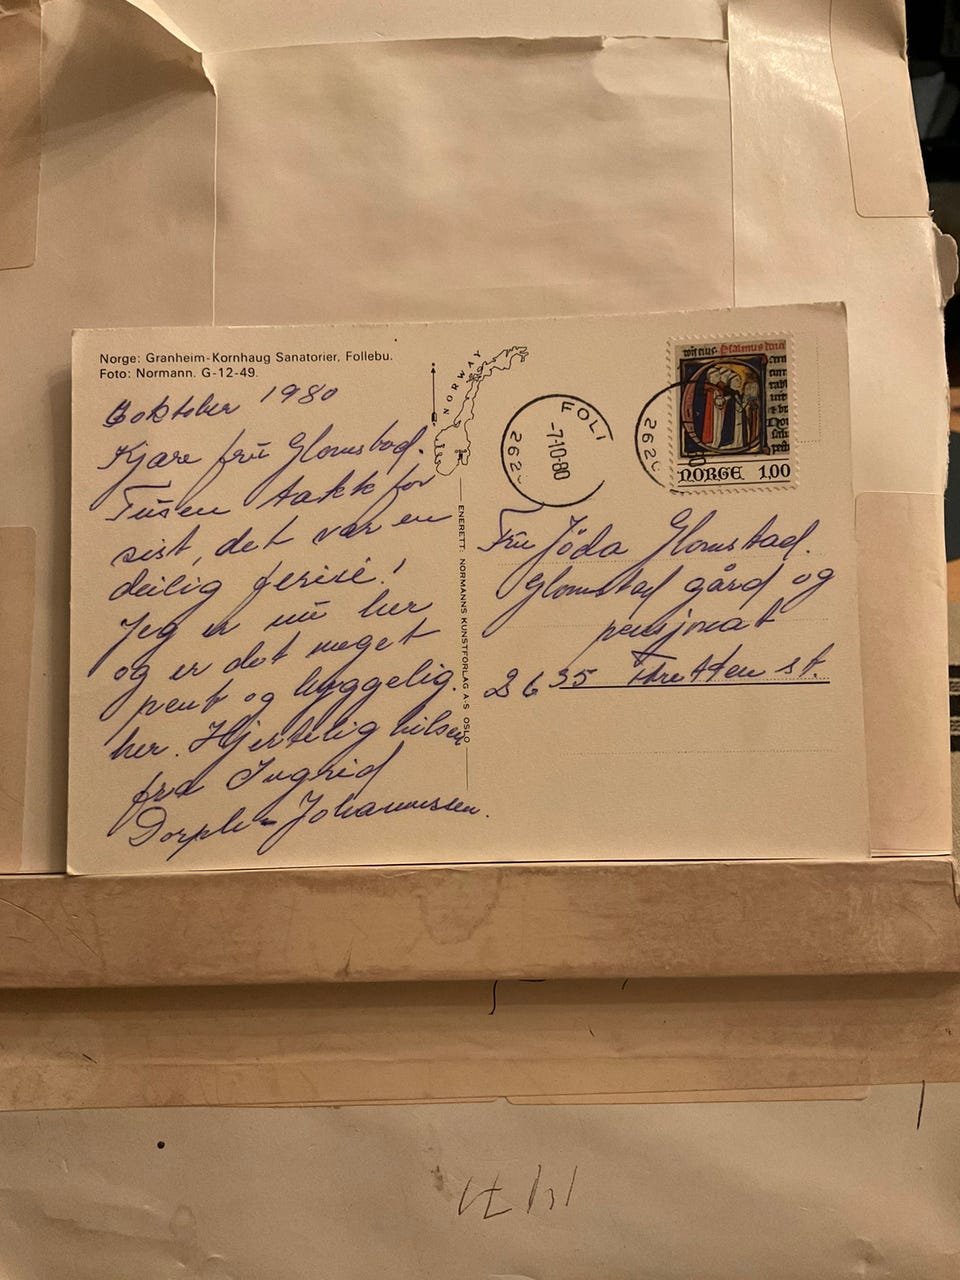 Norge: Granheim-Kornhaug Sanatorier, Follebu.
Foto: Normann. G-12-49.
6 oktober 1980
Kjære frū Glomstad.
Tūsen takk for
sist, det var en
deilig ferie!
Jeg er nū her
og er det meget
pent og hyggelig
her. Hjertelig hilsen
fra Ingrid
Dorph-Johannessen.
NORWAY
ENERETT: NORMANNS KUNSTFORLAG A·S OSLO
FOLL
-7.10-80
262
262
80
Psalmus
NORGE 1,00
Frū Jöda Glomstad.
Glomstad gård og
pensjonat
2635 Tretten st.